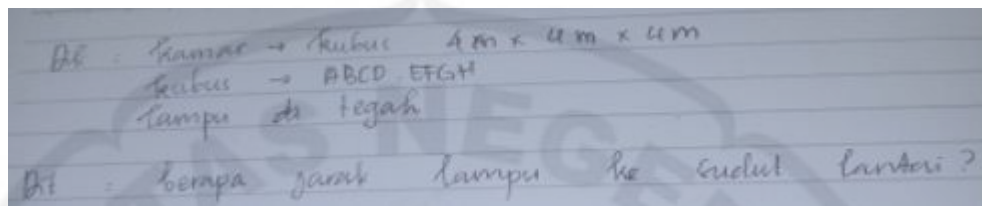 Dik : kamar → kubus 4 m x 4 m x 4m
kubus → ABCD. EFGH
lampu di tegah
Dit : berapa jarak lampu ke sudut lantai?
AS NEGE